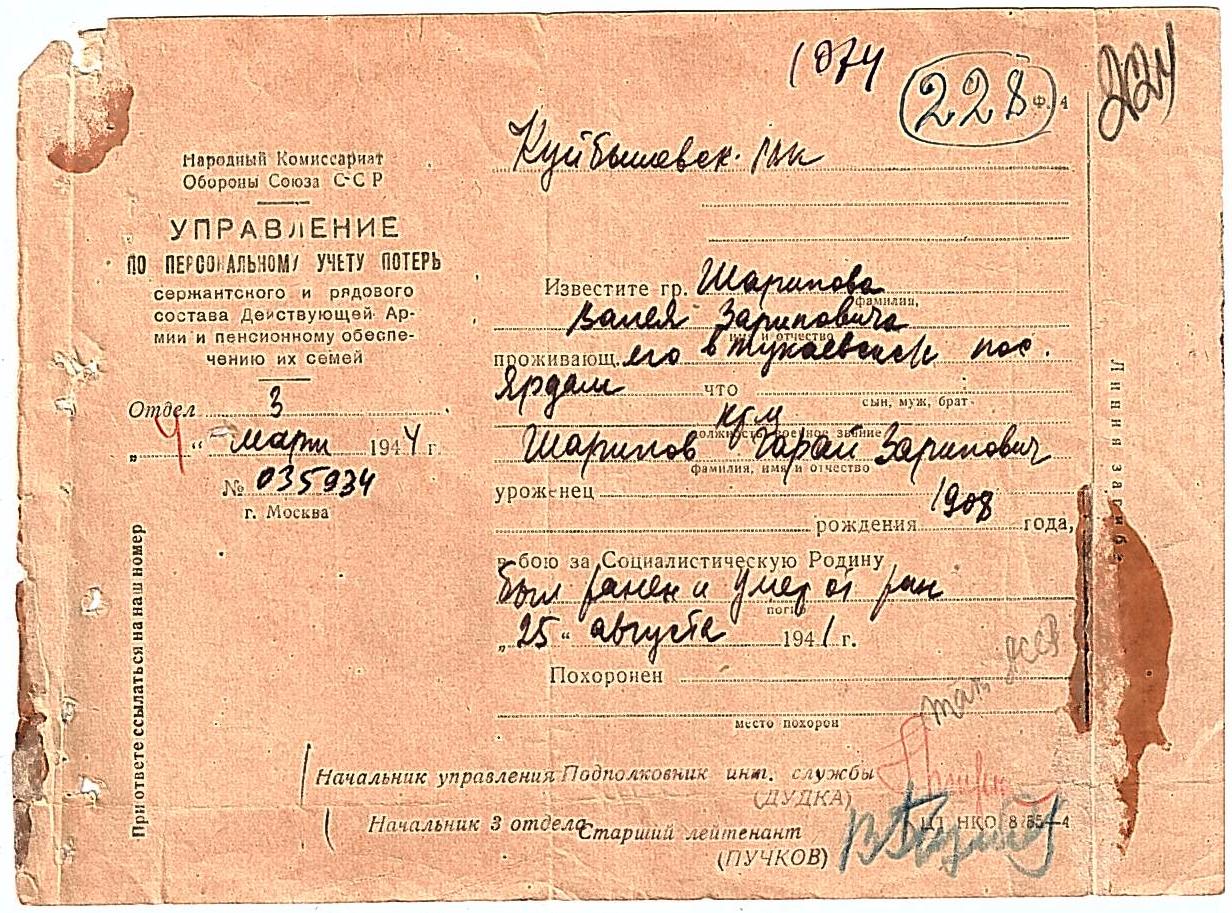 1074
228
Ф. 4
224
Куйбышевск. рвк
Народный Комиссариат
Обороны Союза ССР
УПРАВЛЕНИЕ
ПО ПЕРСОНАЛЬНОМУ УЧЕТУ ПОТЕРЬ
сержантского и рядового
состава Действующей Ар-
мии и пенсионному обеспе-
чению их семей
Отдел 3
"4" марта 1944 г.
№ 035934
г. Москва
При ответе ссылаться на наш номер
Известите гр. Шарипова
фамилия,
Валея Зариповича
имя и отчество
проживающ.его в Тукаевск пос.
Ярдам что
сын, муж, брат
кр-ц
должность и военное звание
Шарипов Гарай Зарипович
фамилия, имя и отчество
уроженец
1908
рождения года,
в бою за Социалистическую Родину
был ранен и умер от ран
погиб
"25" августа 1941 г.
Похоронен
место похорон
тат АССР
Начальник управления Подполковник инт. службы
(ДУДКА)
Начальник 3 отдела Старший лейтенант
(ПУЧКОВ)
ЦТ НКО 8785—4
Линия загиба